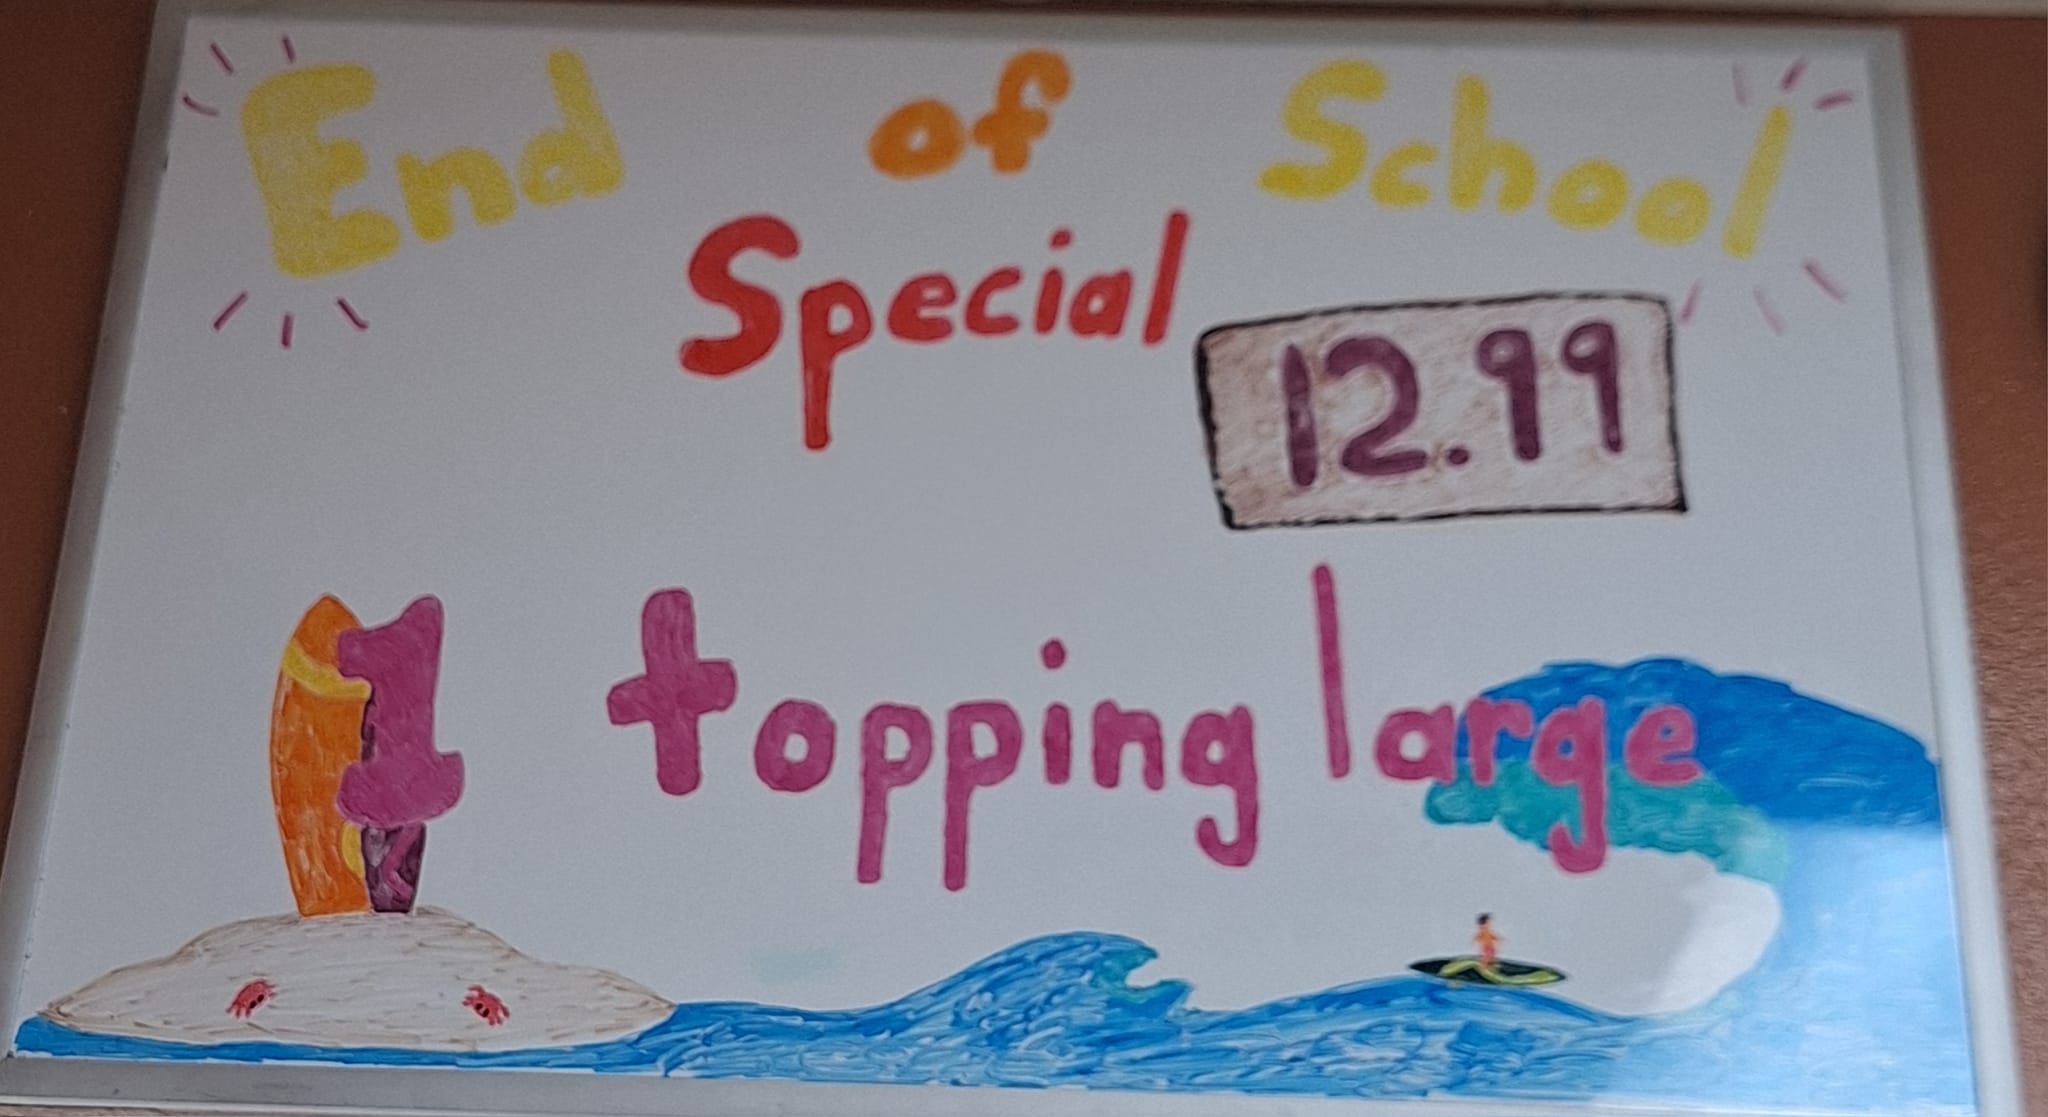 End of School
Special
12.99
1 topping large